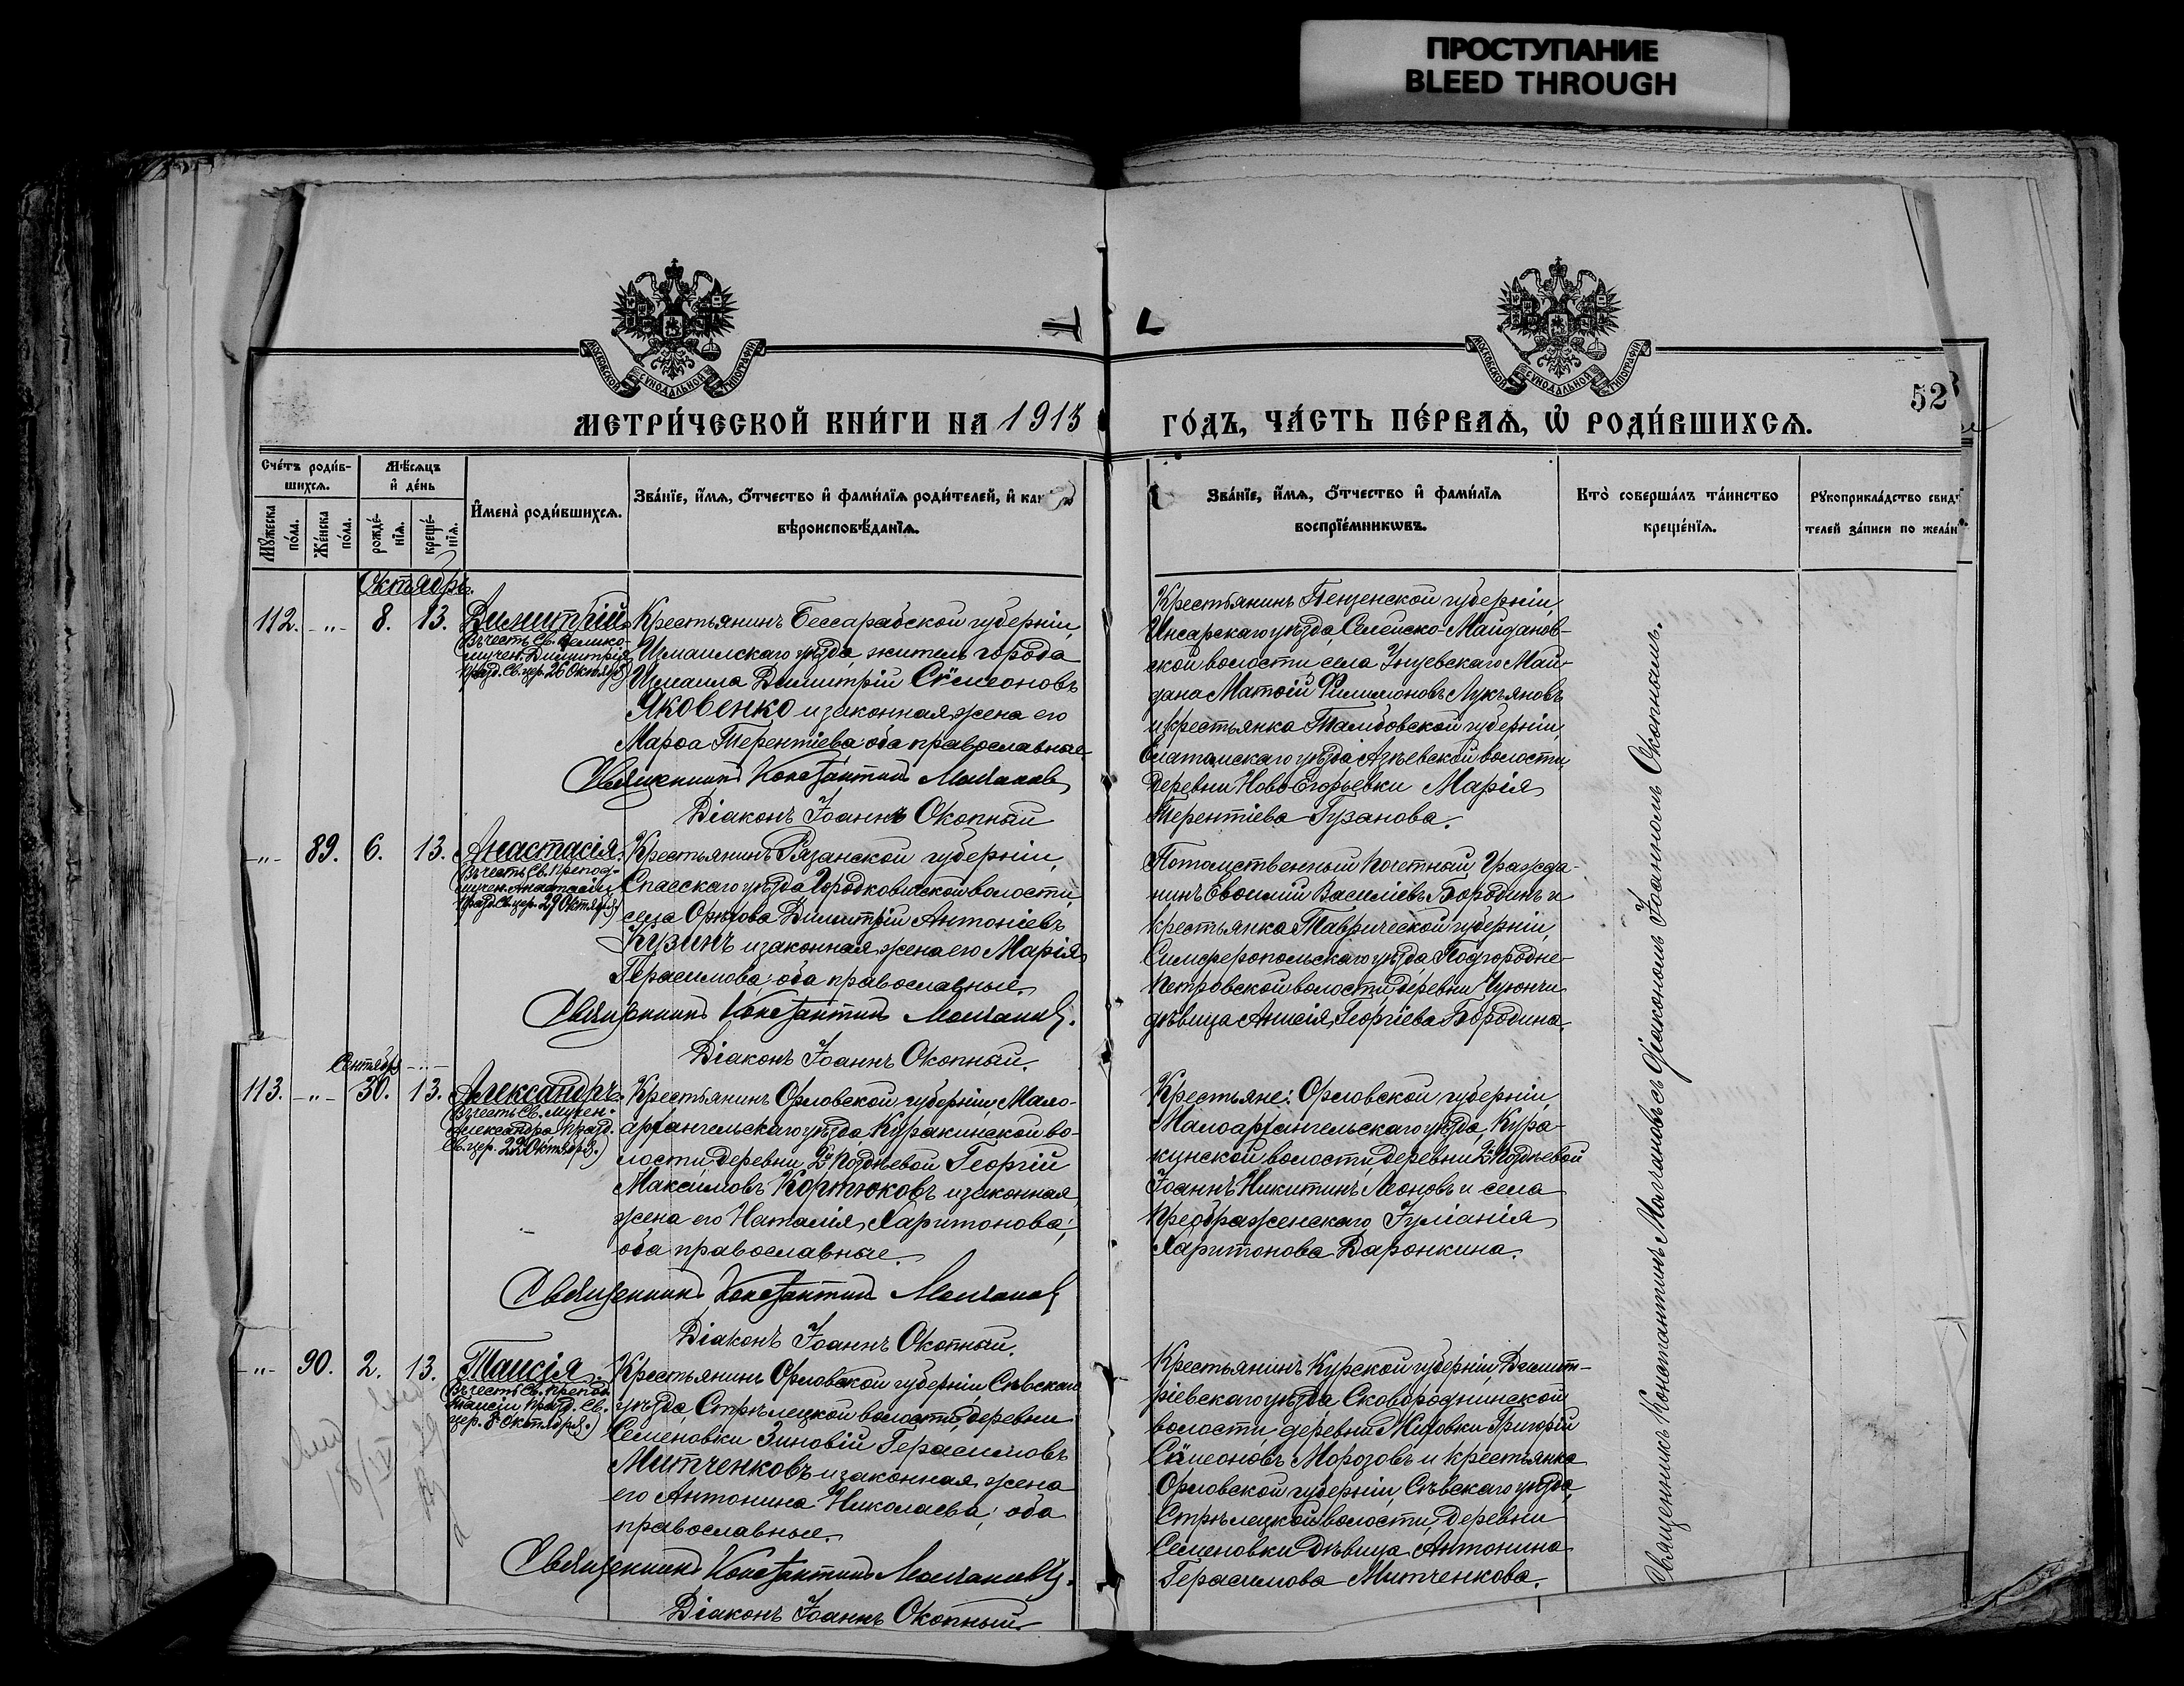 ПРОСТУПАНИЕ
BLEED THROUGH
МОСКОВСКОЙ СѴНОДАЛЬНОЙ ТИПОГРАФІИ
МОСКОВСКОЙ СѴНОДАЛЬНОЙ ТИПОГРАФІИ
52
МЕТРИ́ЧЕСКОЙ КНИ́ГИ НА 1913
ГО́ДЪ, ЧА́СТЬ ПЕ́РВАѦ, Ѡ҆ РОДИ́ВШИХСѦ.
Сче́тъ роди́в-
шихсѧ.
Мѣ́сѧцъ
и҆ де́нь
Мꙋ́жеска по́ла.
Же́нска по́ла.
рожде́-нїѧ.
креще́-нїѧ.
И҆мена̀ роди́вшихсѧ.
Зва́нїе, и҆́мѧ, ѻ҆́тчество и҆ фами́лїѧ роди́телей, и҆
вѣроисповѣ́данїѧ.
Зва́нїе, и҆́мѧ, ѻ҆́тчество и҆ фами́лїѧ
воспрїе́мникѡвъ.
Кто̀ соверша́лъ та́инство
креще́нїѧ.
Рꙋкоприкла́дство
телей за́писи по
Октябрь.
112. -"- 8. 13. Димитрій
Въ честь Св. Велико-
мучен. Димитрія
празд. Св. цер. 26 Октября)
Крестьянинъ Бессарабской губерніи,
Измаилскаго уѣзда, житель города
Измаила Димитрій Сѵмеоновъ
Яковенко и законная жена его
Марѳа Терентіева; оба православные.
Священникъ Константинъ Молчановъ
Діаконъ Іоаннъ Окопный
Крестьянинъ Пензенской губерніи,
Инсарскаго уѣзда, Майданов-
ской волости, села Май-
дана Матѳій Филимоновъ Лукьяновъ
и крестьянка Тамбовской губерніи,
Елатомскаго уѣзда Азѣевской волости,
деревни Ново-Егорьевки Марія
Терентіева Гузанова.
-"- 89. 6. 13. Анастасія.
Въ честь Св. Препод-
мучен. Анастасіи
празд. Св. цер. 29 Октября)
Крестьянинъ Рязанской губерніи,
Спасскаго уѣзда Городковической волости,
села Орѣхова Димитрій Антоніевъ
Кузинъ и законная жена его Марія
Герасимова; оба православные.
Священникъ Константинъ Молчановъ.
Діаконъ Іоаннъ Окопный.
Потомственный почетный Гражда-
нинъ Евѳимій Василіевъ Бородинъ и
крестьянка Таврической губерніи,
Симферопольскаго уѣзда, Подгородне-
Петровской волости, деревни Чуюнчи
дѣвица Анисія Георгіева Бородина.
Сентября -"-
113. -"- 30. 13. Александръ.
Въ честь Св. мучен.
Александра празд.
Св. цер. 22 Октября.)
Крестьянинъ Орловской губерніи, Мало-
архангельскаго уѣзда, Куракинской во-
лости, деревни Поздѣевой Георгій
Максимовъ Кортюковъ и законная
жена его Наталія Харитонова;
оба православные.
Священникъ Константинъ Молчановъ
Діаконъ Іоаннъ Окопный.
Крестьяне: Орловской губерніи,
Малоархангельскаго уѣзда, Кура-
кинской волости, деревни Поздѣевой
Іоаннъ Никитинъ Леоновъ и села
Преображенскаго Іуліанія
Харитонова Даронкина.
-"- 90. 2. 13. Таисія.
Въ честь Св. препод.
Таисіи празд. Св.
цер. 8 Октября.)
Крестьянинъ Орловской губерніи Сѣвскаго
уѣзда, Стрѣлецкой волости, деревни
Семеновки Зиновій Герасимовъ
Митченковъ и законная жена
его Антонина Николаева; оба
православные.
Священникъ Константинъ Молчановъ.
Діаконъ Іоаннъ Окопный.
Крестьянинъ Курской губерніи, Дмит-
ріевскаго уѣзда, Сковороднинской
волости, деревни Григорій
Сѵмеоновъ Морозовъ и крестьянка
Орловской губерніи Сѣвскаго уѣзда,
Стрѣлецкой волости, деревни
Семеновки Дѣвица Антонина
Герасимова Митченкова.
Священникъ Константинъ Молчановъ съ діакономъ Іоанномъ Окопнымъ.